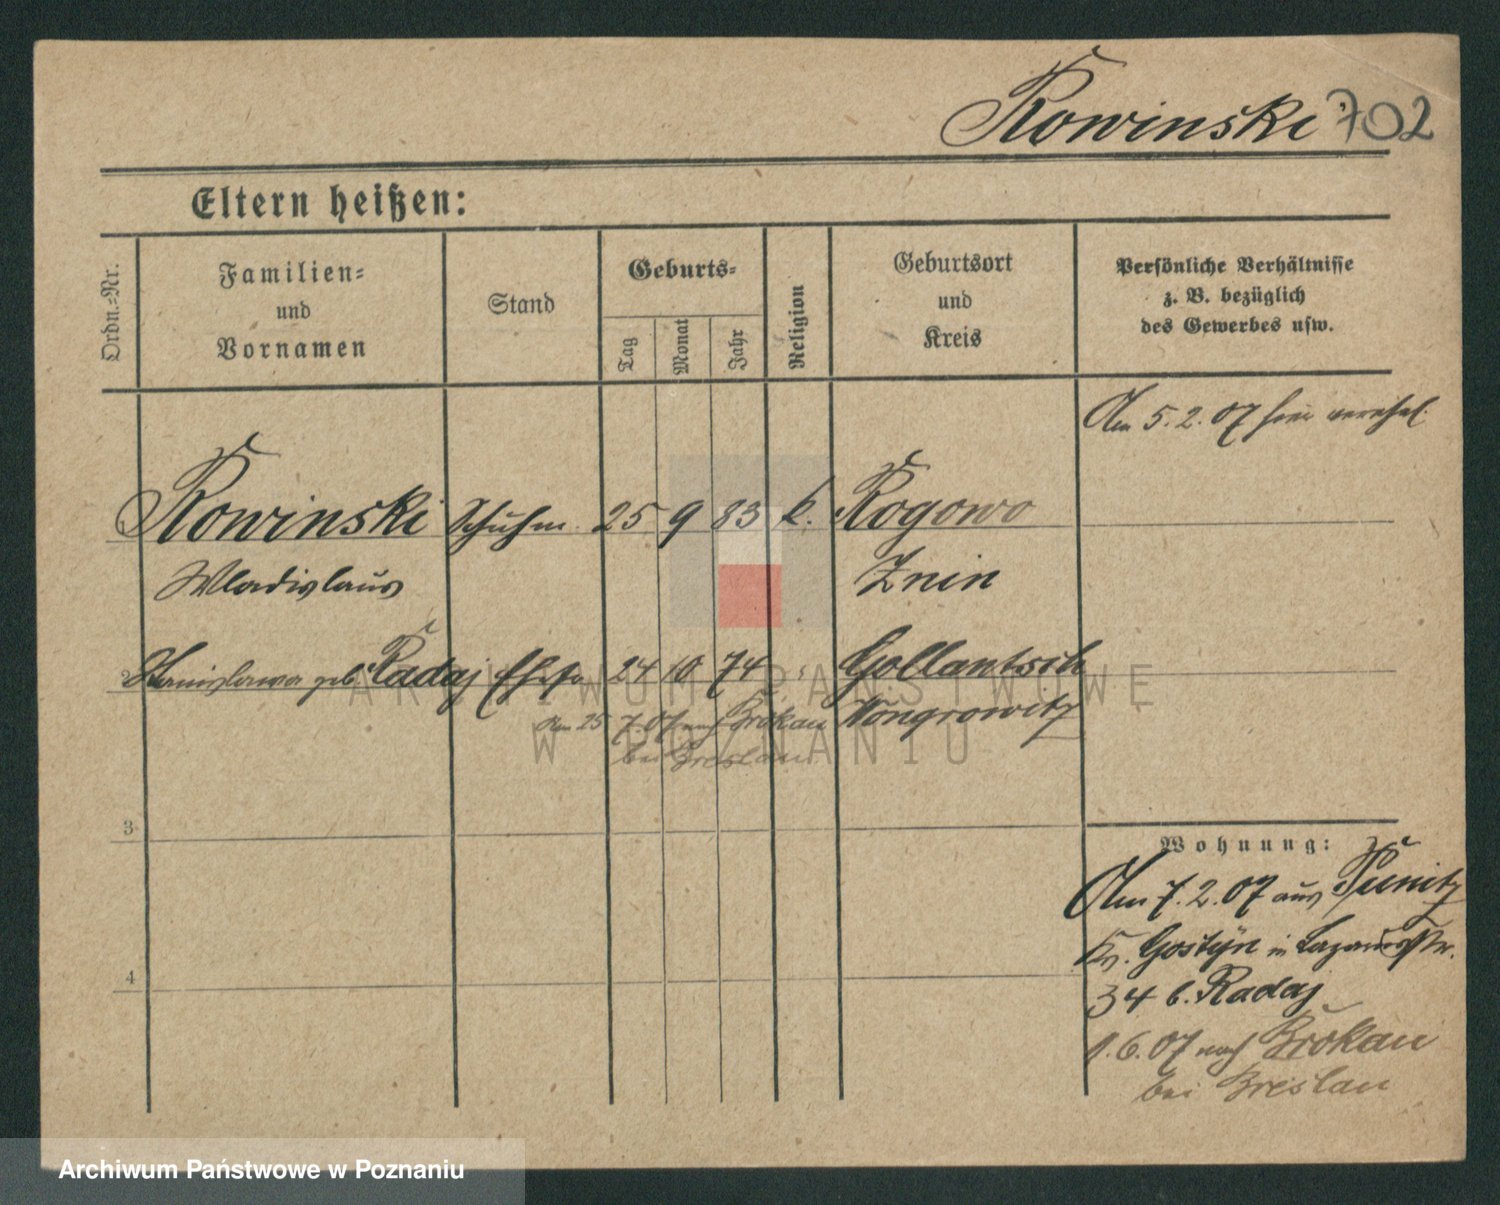 Rowinski 702
Eltern heißen:
Ordn.=Nr.
Familien=
und
Vornamen
Stand
Geburts=
Tag
Monat
Jahr
Religion
Geburtsort
und
Kreis
Persönliche Verhältnisse
z. B. bezüglich
des Gewerbes usw.
Am 5. 2. 07 hier verehel.
Rowinski Schuhm. 25 9 83 k. Rogowo
Wladislaus Znin
2 Stanislawa geb. Radaj Ehefr. 24 10 74 Gollantsch
Am 25 7. 07 nach Brokau Wongrowitz
bei Breslau
3
4
Wohnung:
Am 7. 2. 07 aus Punitz
Kr. Gostyn in Lazarusstr.
34 b. Radaj
1. 6. 07 nach Brokau
bei Breslau
ARCHIWUM PAŃSTWOWE
W POZNANIU
Archiwum Państwowe w Poznaniu